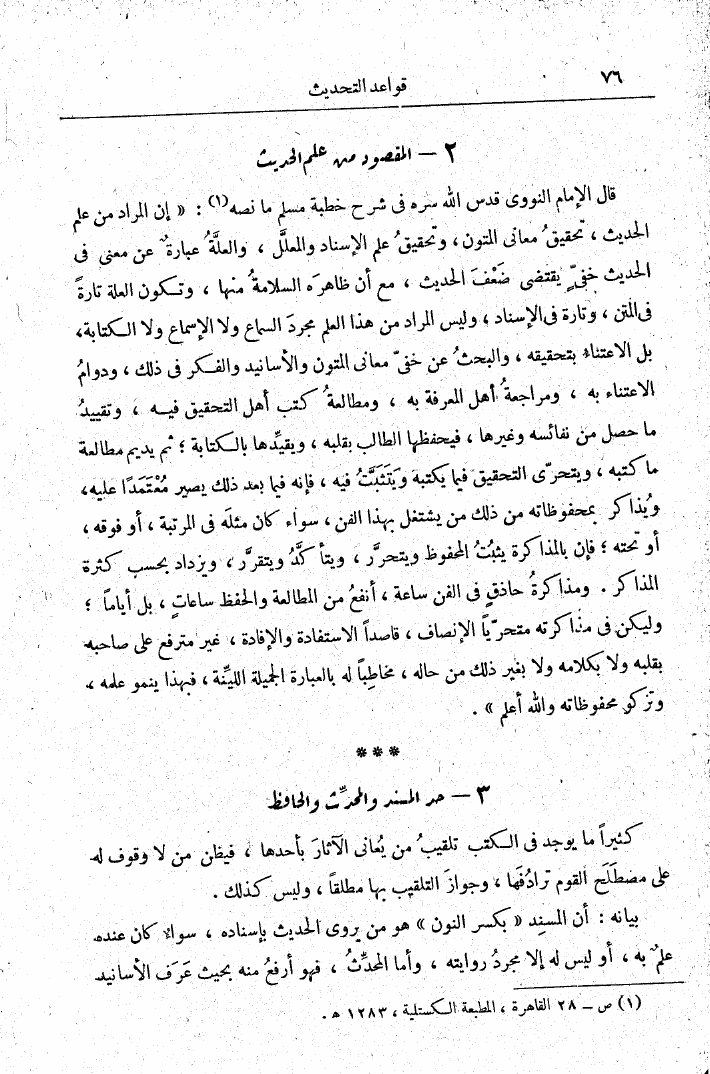 ٧٦
قواعد التحديث
٢ – المقصود من علم الحديث
قال الإمام النووى قدس الله سره فى شرح خطبة مسلم ما نصه(١) : « إن المراد من علم
الحديث ، تحقيقُ معانى المتون ، وتحقيقُ علم الإسناد والمعلَّل ، والعلَّةُ عبارةٌ عن معنى فى
الحديث خفىٍّ يقتضى ضَعْفَ الحديث ، مع أن ظاهرَه السلامةُ منها ، وتكون العلة تارةً
فى المتن ، وتارة فى الإسناد ، وليس المراد من هذا العلم مجردَ السماع ولا الإسماع ولا الكتابة،
بل الاعتناءُ بتحقيقه ، والبحثُ عن خفىّ معانى المتون والأسانيد والفكر فى ذلك ، ودوامُ
الاعتناء به ، ومراجعةُ أهل المعرفة به ، ومطالعةُ كتب أهل التحقيق فيه ، وتقييدُ
ما حصل من نفائسه وغيرها ، فيحفظها الطالب بقلبه ، ويقيِّدها بالكتابة ؛ ثم يديم مطالعة
ما كتبه ، ويتحرّى التحقيق فيما يكتبه وَيَتَثَبَّتُ فيه ، فإنه فيما بعد ذلك يصير مُعْتَمَدًا عليه،
ويُذاكر بمحفوظاته من ذلك من يشتغل بهذا الفن ، سواء كان مثلَه فى المرتبة ، أو فوقه ،
أو تحته ؛ فإن بالمذاكرة يثبُتُ المحفوظ ويتحرَّر ، ويتأكَّدُ ويتقرَّر ، ويزداد بحسب كثرة
المذاكر . ومذاكرةُ حاذقٍ فى الفن ساعة ، أنفعُ من المطالعة والحفظ ساعاتٍ ، بل أياماً ؛
وليكن فى مذاكرته متحرّياً الإنصاف ، قاصداً الاستفادة والإفادة ، غير مترفع على صاحبه
بقلبه ولا بكلامه ولا بغير ذلك من حاله ، مخاطِباً له بالعبارة الجميلة الليِّنة ، فبهذا ينمو علمه ،
وتزكو محفوظاته والله أعلم » .
***
٣ – حد المسند والمحدِّث والحافظ
كثيراً ما يوجد فى الكتب تلقيبُ من يُعانى الآثارَ بأحدها ، فيظن من لا وقوف له
على مصْطَلَح القوم ترادُفَها ، وجوازَ التلقيب بها مطلقاً ، وليس كذلك .
بيانه : أن المسنِد « بكسر النون » هو من يروى الحديث بإسناده ، سواءٌ كان عنده
علمٌ به ، أو ليس له إلا مجردُ روايته ، وأما المحدِّثُ ، فهو أرفعُ منه بحيث عَرَف الأسانيد
(١) ص – ٢٨ القاهرة ، المطبعة الكستلية ، ١٢٨٣ ه .